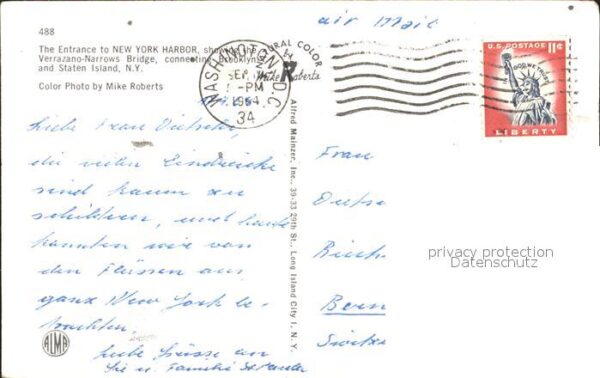 488
The Entrance to NEW YORK HARBOR, show the
Verrazano-Narrows Bridge, connecting Brooklyn
and Staten Island, N.Y.
Color Photo by Mike Roberts
NATURAL COLOR
Mike Roberts
WASHINGTON, D.C.
SEP
PM
1964
34
air Mail
U.S. POSTAGE 11¢
IN GOD WE TRUST
LIBERTY
Liebe Frau
die vielen Eindrücke
sind kaum zu
schildern, und heute
konnten wir von
den Flüssen aus
ganz New York be-
trachten.
Liebe Grüsse an
Sie u. Familie
ALMA
Alfred Mainzer, Inc., 39-33 29th St., Long Island City 1, N.Y.
Frau
Bern
privacy protection
Datenschutz